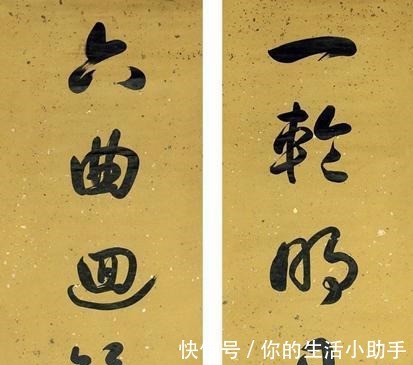 一輪明月
六曲迴
快传号 / 你的生活小助手